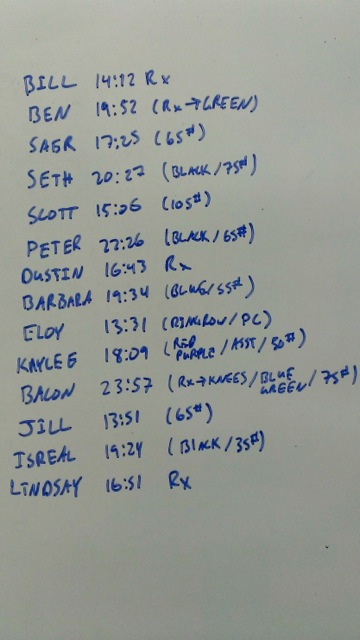 BILL 14:12 Rx
BEN 19:52 (Rx→GREEN)
SAER 17:25 (65#)
SETH 20:27 (BLACK/75#)
SCOTT 15:06 (105#)
PETER 22:26 (BLACK/65#)
DUSTIN 16:43 Rx
BARBARA 19:34 (BLUE/55#)
ELOY 13:31 (RINGROW/PC)
KAYLEE 18:09 (RED PURPLE/ASST/30#)
BACON 23:57 (Rx→KNEES/BLUE GREEN/75#)
JILL 13:51 (65#)
ISREAL 19:24 (BLACK/35#)
LINDSAY 16:51 Rx